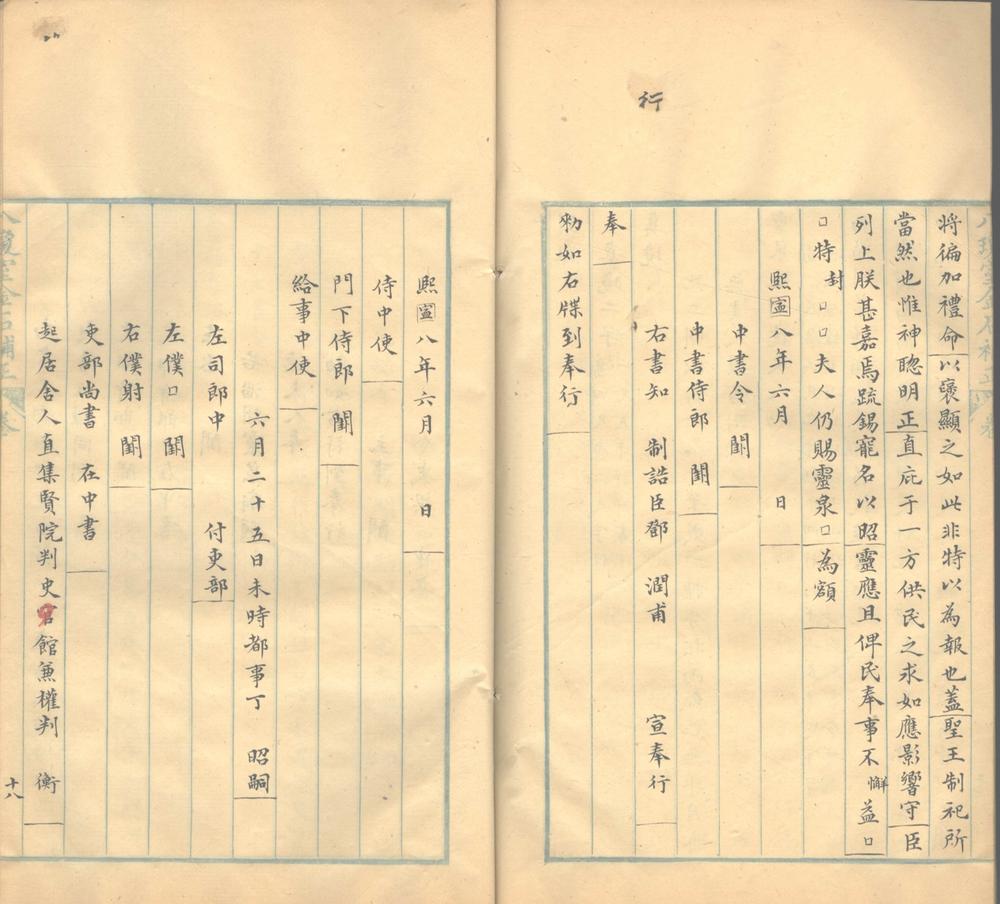 行
將徧加禮命以襃顯之如此非特以為報也蓋聖王制祀所
當然也惟神聦明正直庇于一方供民之求如應影響守臣
列上朕甚嘉焉疏錫寵名以昭靈應且俾民奉事不懈益□
□特封□□夫人仍賜靈泉□為額
熙寍八年六月 日
中書令 闕
中書侍郎 闕
右書知 制誥臣鄧 潤甫 宣奉行
奉
勑如右牒到奉行
熙寍八年六月 日
侍中使
門下侍郎 闕
給事中使
六月二十五日未時都事丁 昭嗣
左司郎中 付吏部
左僕□ 闕
右僕射 闕
吏部尚書 在中書
起居舍人直集賢院判史官館兼權判 衡
十八